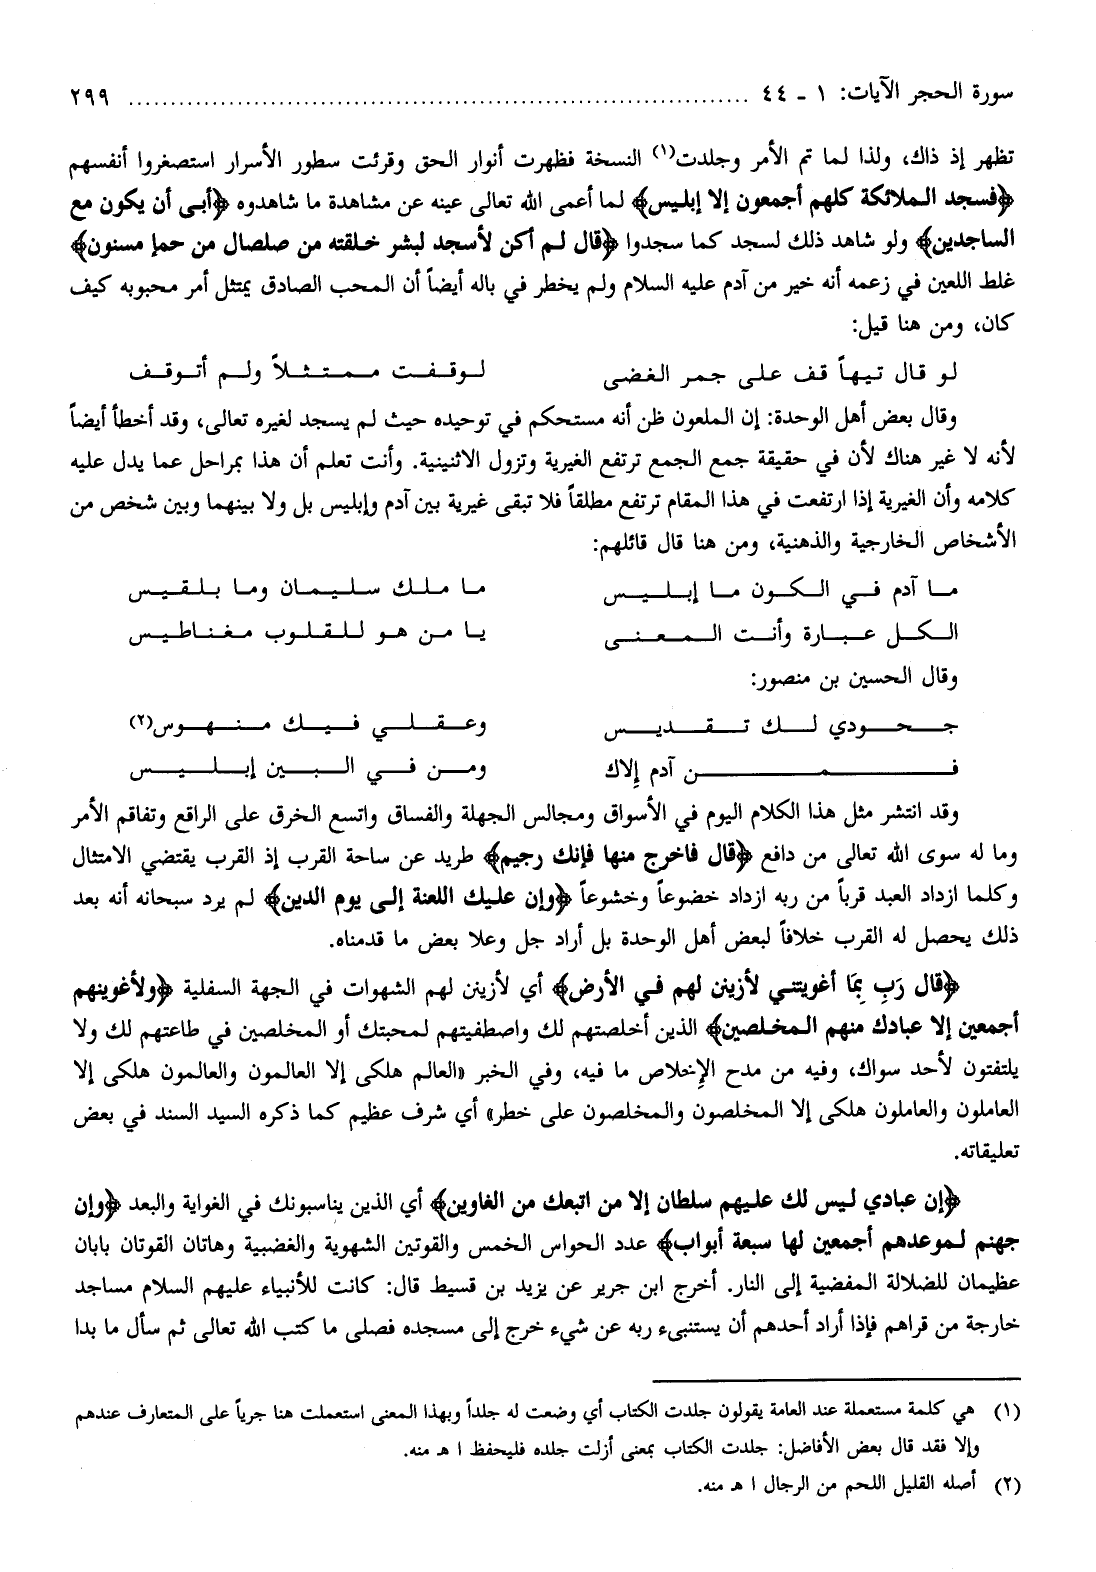 سورة الحجر الآيات: ١ - ٤٤ ........................................................................... ٢٩٩
تظهر إذ ذاك، ولذا لما تم الأمر وجلدت(١) النسخة فظهرت أنوار الحق وقرئت سطور الأسرار استصغروا أنفسهم
﴿فسجد الملائكة كلهم أجمعون إلا إبليس﴾ لما أعمى الله تعالى عينه عن مشاهدة ما شاهدوه ﴿أبى أن يكون مع
الساجدين﴾ ولو شاهد ذلك لسجد كما سجدوا ﴿قال لم أكن لأسجد لبشر خلقته من صلصال من حمإ مسنون﴾
غلط اللعين في زعمه أنه خير من آدم عليه السلام ولم يخطر في باله أيضاً أن المحب الصادق يمتثل أمر محبوبه كيف
كان، ومن هنا قيل:
لو قال تيهاً قف على جمر الغضى لوقفت ممتثلاً ولم أتوقف
وقال بعض أهل الوحدة: إن الملعون ظن أنه مستحكم في توحيده حيث لم يسجد لغيره تعالى، وقد أخطأ أيضاً
لأنه لا غير هناك لأن في حقيقة جمع الجمع ترتفع الغيرية وتزول الاثنينية. وأنت تعلم أن هذا بمراحل عما يدل عليه
كلامه وأن الغيرية إذا ارتفعت في هذا المقام ترتفع مطلقاً فلا تبقى غيرية بين آدم وإبليس بل ولا بينهما وبين شخص من
الأشخاص الخارجية والذهنية، ومن هنا قال قائلهم:
ما آدم في الكون ما إبليس ما ملك سليمان وما بلقيس
الكل عبارة وأنت المعنى يا من هو للقلوب مغناطيس
وقال الحسين بن منصور:
جحودي لك تقديس وعقلي فيك منهوس(٢)
فمن آدم إلاك ومن في البين إبليس
وقد انتشر مثل هذا الكلام اليوم في الأسواق ومجالس الجهلة والفساق واتسع الخرق على الراقع وتفاقم الأمر
وما له سوى الله تعالى من دافع ﴿قال فاخرج منها فإنك رجيم﴾ طريد عن ساحة القرب إذ القرب يقتضي الامتثال
وكلما ازداد العبد قرباً من ربه ازداد خضوعاً وخشوعاً ﴿وإن عليك اللعنة إلى يوم الدين﴾ لم يرد سبحانه أنه بعد
ذلك يحصل له القرب خلافاً لبعض أهل الوحدة بل أراد جل وعلا بعض ما قدمناه.
﴿قال رَبِ بِمَا أغويتني لأزينن لهم في الأرض﴾ أي لأزينن لهم الشهوات في الجهة السفلية ﴿ولأغوينهم
أجمعين إلا عبادك منهم المخلصين﴾ الذين أخلصتهم لك واصطفيتهم لمحبتك أو المخلصين في طاعتهم لك ولا
يلتفتون لأحد سواك، وفيه من مدح الإخلاص ما فيه، وفي الخبر «العالم هلكى إلا العالمون والعالمون هلكى إلا
العاملون والعاملون هلكى إلا المخلصون والمخلصون على خطر» أي شرف عظيم كما ذكره السيد السند في بعض
تعليقاته.
﴿إن عبادي ليس لك عليهم سلطان إلا من اتبعك من الغاوين﴾ أي الذين يناسبونك في الغواية والبعد ﴿وإن
جهنم لموعدهم أجمعين لها سبعة أبواب﴾ عدد الحواس الخمس والقوتين الشهوية والغضبية وهاتان القوتان بابان
عظيمان للضلالة المفضية إلى النار. أخرج ابن جرير عن يزيد بن قسيط قال: كانت للأنبياء عليهم السلام مساجد
خارجة من قراهم فإذا أراد أحدهم أن يستنبىء ربه عن شيء خرج إلى مسجده فصلى ما كتب الله تعالى ثم سأل ما بدا
(١) هي كلمة مستعملة عند العامة يقولون جلدت الكتاب أي وضعت له جلداً وبهذا المعنى استعملت هنا جرياً على المتعارف عندهم
وإلا فقد قال بعض الأفاضل: جلدت الكتاب بمعنى أزلت جلده فليحفظ ا هـ منه.
(٢) أصله القليل اللحم من الرجال ا هـ منه.